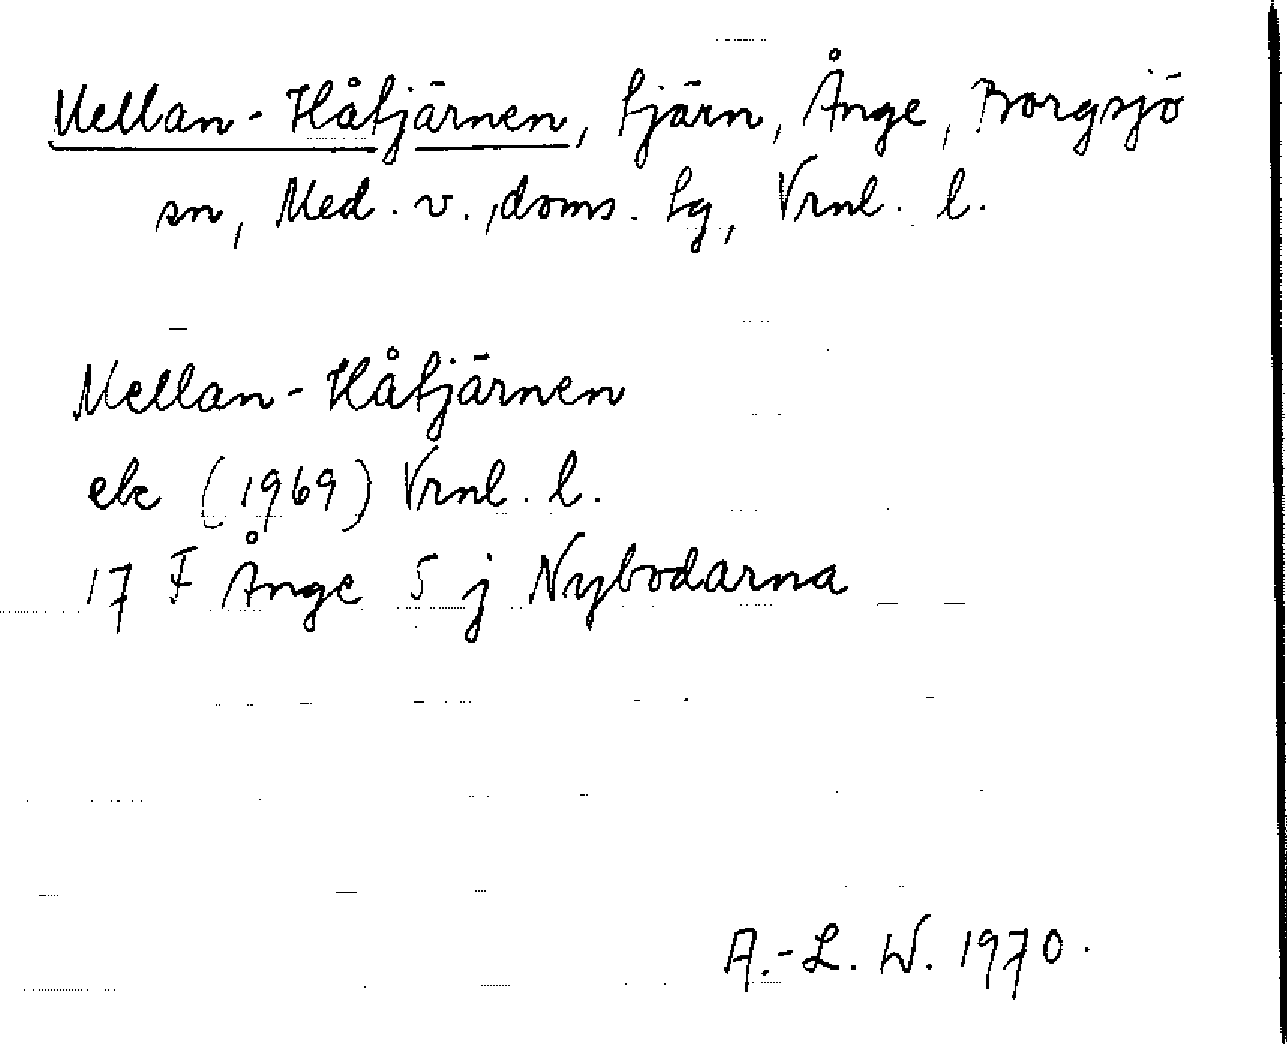 Mellan-Håtjärnen, tjärn, Ånge, Borgsjö
sn, Med. v., doms. tg, Vrnl. l.
Mellan-Håtjärnen
ek (1969) Vrnl. l.
17 F Ånge 5 j Nybodarna
A.-L. W. 1970.